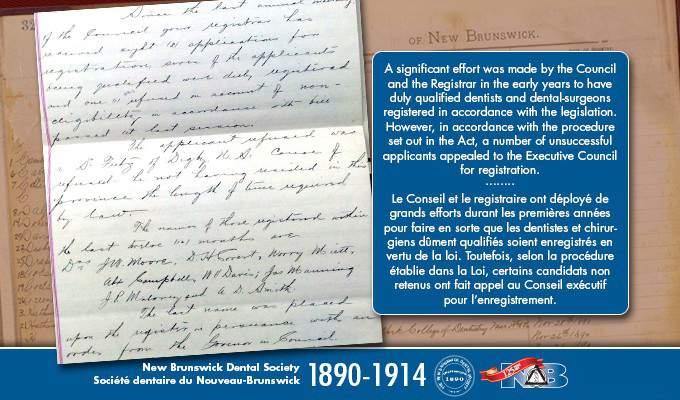 Since the last annual meeting
of the Council your registrar has
received eight (8) applications for
registration, seven of the applicants
being qualified were duly registered
and one (1) refused on account of non-
eligibility, in accordance with bill
passed at last session.
The applicant refused was
of Digby N.S. Cause of
refusal, he not having resided in the
province the length of time required
by law.
The names of those registered within
the last twelve (12) months are
Drs J.W. Moore, D.H.
Campbell, W.P. Davis, Jas Manning
J.P. Maloney and A.D. Smith.
The last name was placed
upon the register in persuance with an
order from the Governor in Council
OF NEW BRUNSWICK.
A significant effort was made by the Council
and the Registrar in the early years to have
duly qualified dentists and dental-surgeons
registered in accordance with the legislation.
However, in accordance with the procedure
set out in the Act, a number of unsuccessful
applicants appealed to the Executive Council
for registration.
Le Conseil et le registraire ont déployé de
grands efforts durant les premières années
pour faire en sorte que les dentistes et chirur-
giens dûment qualifiés soient enregistrés en
vertu de la loi. Toutefois, selon la procédure
établie dans la Loi, certains candidats non
retenus ont fait appel au Conseil exécutif
pour l'enregistrement.
College of Dentistry
New Brunswick Dental Society
Société dentaire du Nouveau-Brunswick
1890-1914
1890
NB